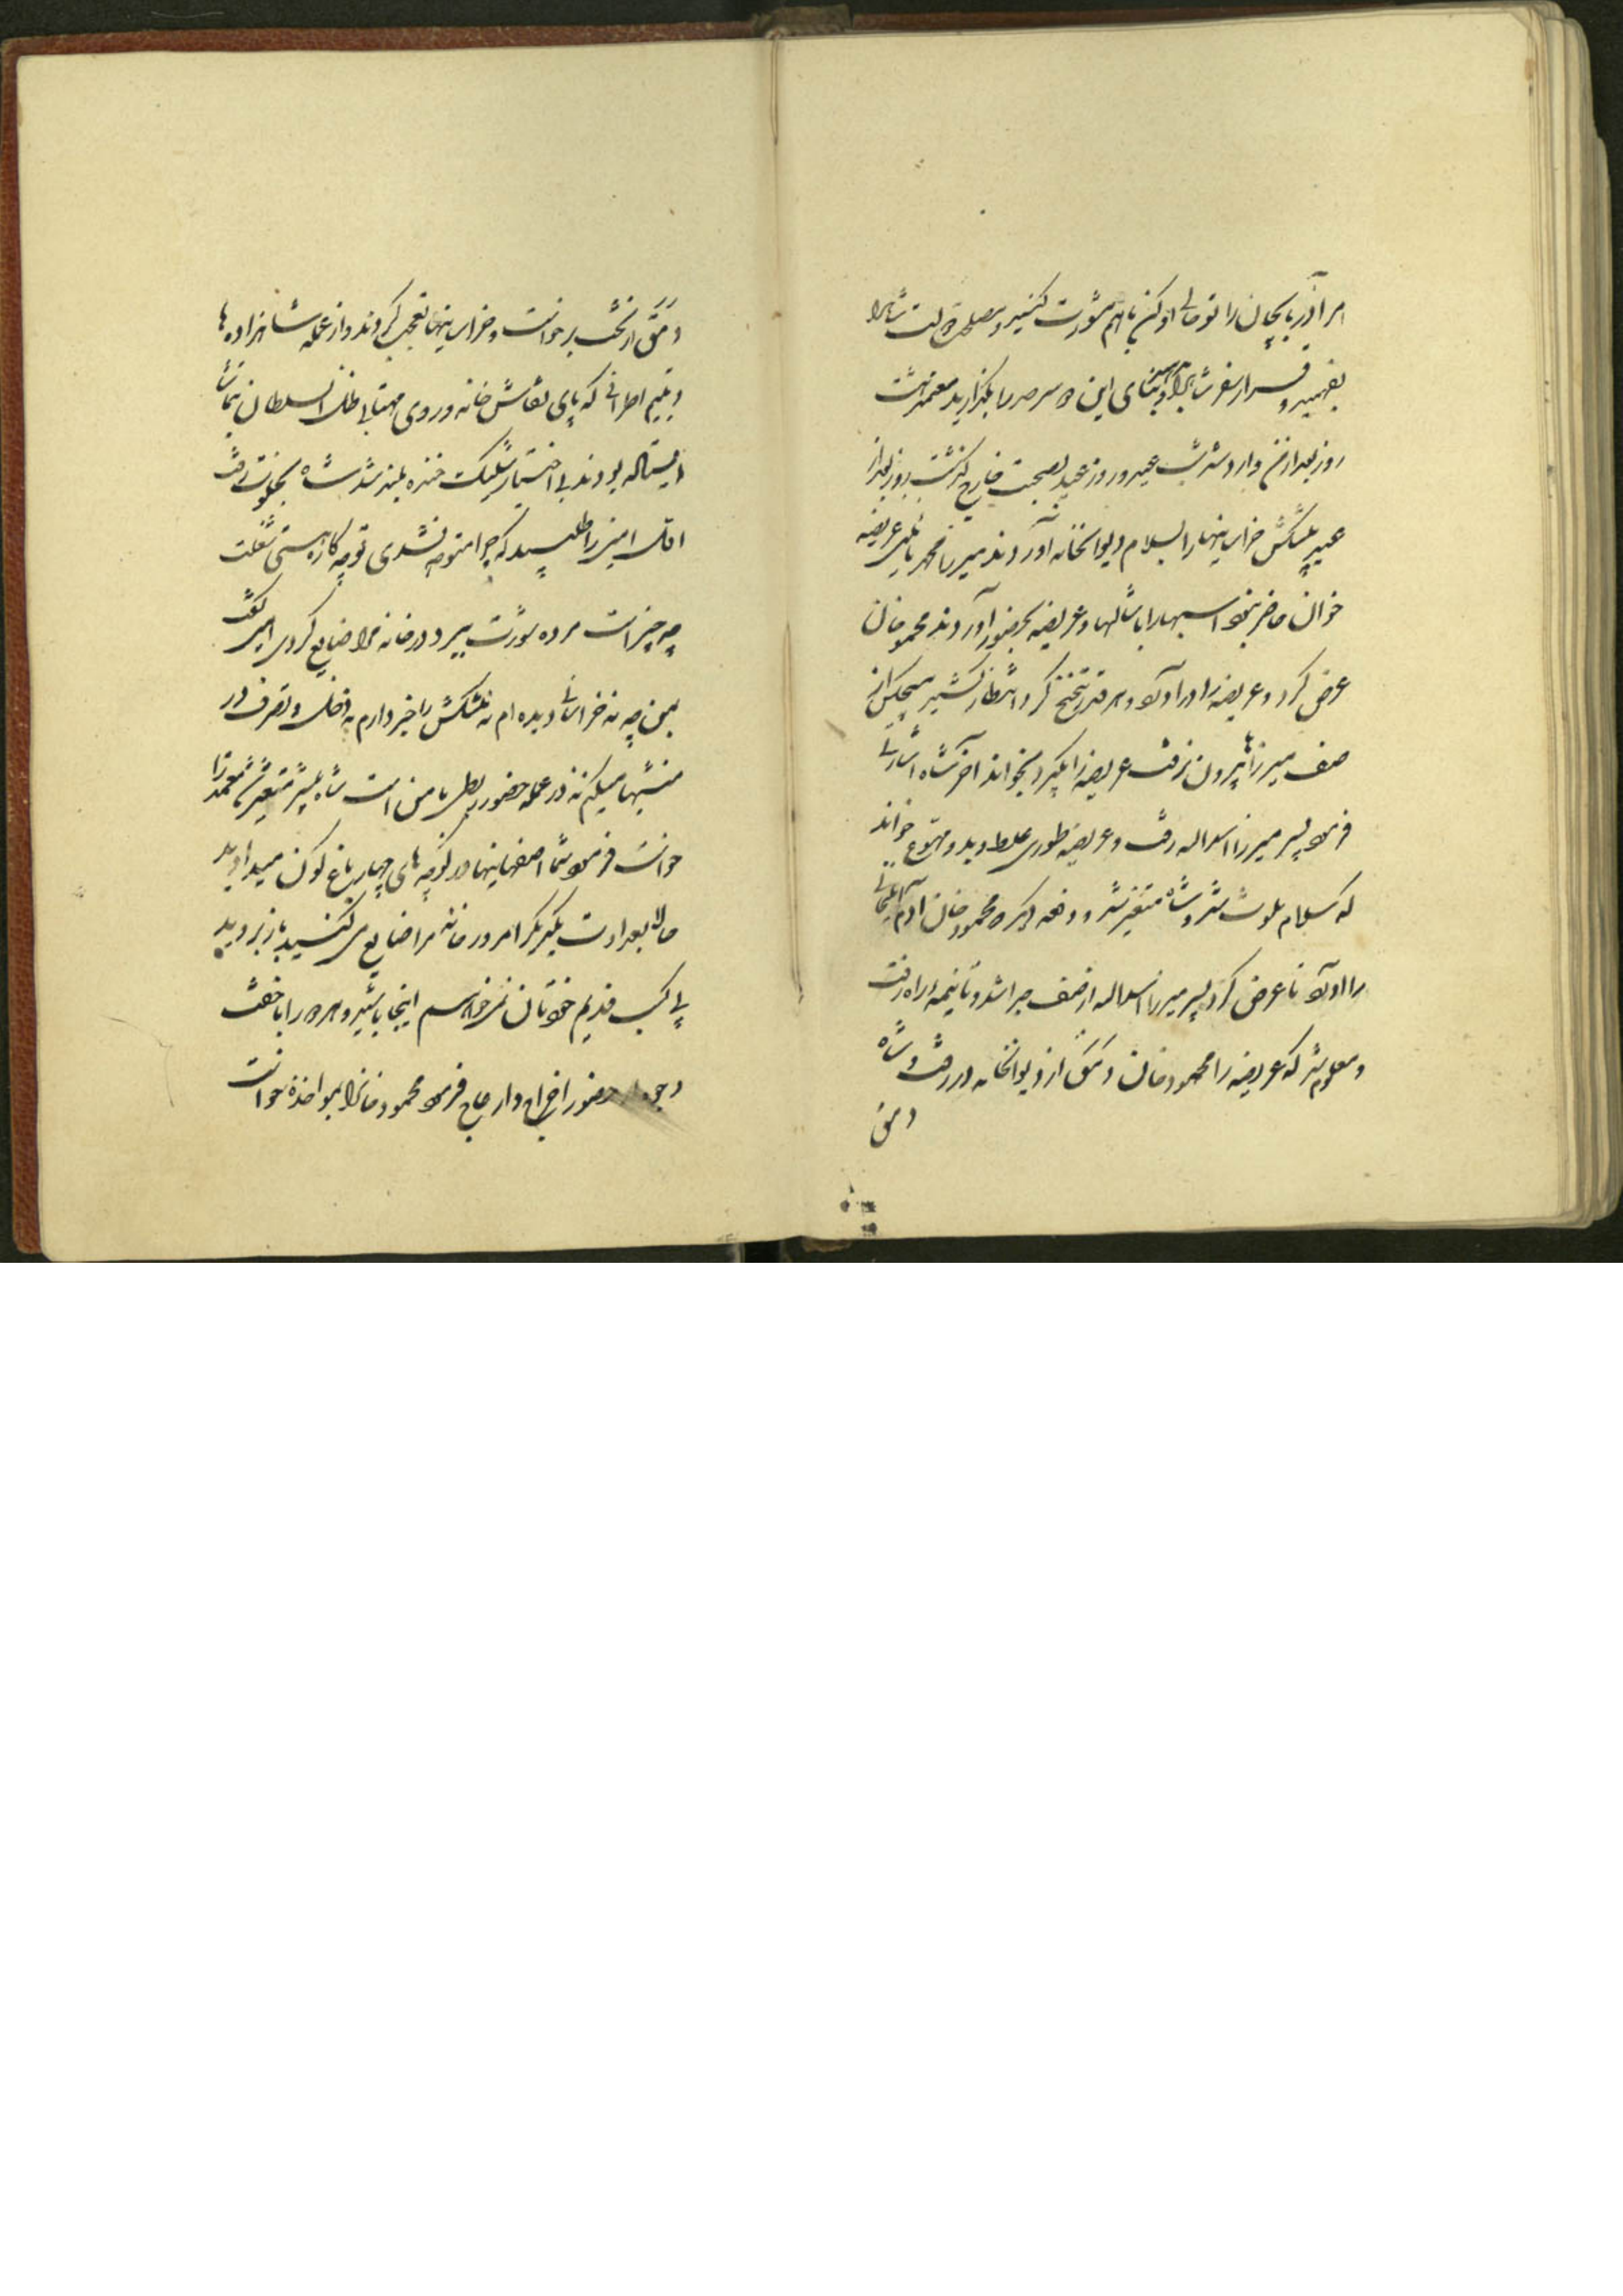 امر آذربایجان را تو حالی او کن با هم مشورت کنید و مصلحت دولت شاه را
بفهمید و قرار سفر شاه را و بنای این سر حد را بگذارید معتمد هشت
روز بعد از من وارد شد شب عید و روز عید بصحبت خارج گذشت روز بعد از
عید پیشکش خراسانیها را بسلام دیوانخانه آوردند میرزا محمد نائینی عریضه
خوان حاضر نبود اسبها را با شالها و عریضه بحضور آوردند محمود خان
عرض کرد و عریضه را در آورد و هر قدر تنحنح کرد و انتظار کشید هیچکس از
صف میرزاها بیرون نرفت عریضه را بگیرد بخواند آخر شاه اشارتی
فرمود پسر میرزا اسدالله رفت و عریضه طوری غلط و بد و مهوع خواند
که سلام ملوث شد و شاه متغیر شد و دفعه دیگر که محمود خان آدم ایلخانی
را آورد تا عرض کرد پسر میرزا اسدالله از صف جدا شد و تا نیمه راه رفت
و معلوم شد که عریضه را محمود خان دمق از دیوانخانه در رفت و شاه
دمق
دمق از تخت برخواست و خراسانیها تعجب کردند و از عمله شاهزاده‌ها
و مقیم اطرافی که پای نقاش خانه و روی مهتابی ظل السلطان بتماشا
ایستاده بودند بی اختیار شلیک خنده بلند شد شاه بخلوت رفت
اول امین را طلبید که چرا متوجه نشدی تو چه کاره هستی شغلت
چه چیز است مرده شورت ببرد در خانه مرا ضایع کردی امین گفت
بمن چه نه خراسانی دیده ام نه پیشکش را خبر دارم نه دخل و تصرف در
منشیها میکنم نه در عمله حضور ربطی با من است شاه بیشتر متغیر شد معتمد را
خواست فرمود شما اصفهانیها در کوچه های چهار باغ کوک میدادید
حالا بعداوت یکدیگر امر در خانه مرا ضایع می کنید باز بروید
پی کسب قدیم خودتان نمیخواهم اینجا باشید و هر دو را با خفت
از حضور اخراج و ارجاع فرمود محمود خان را بمواخذه خواست